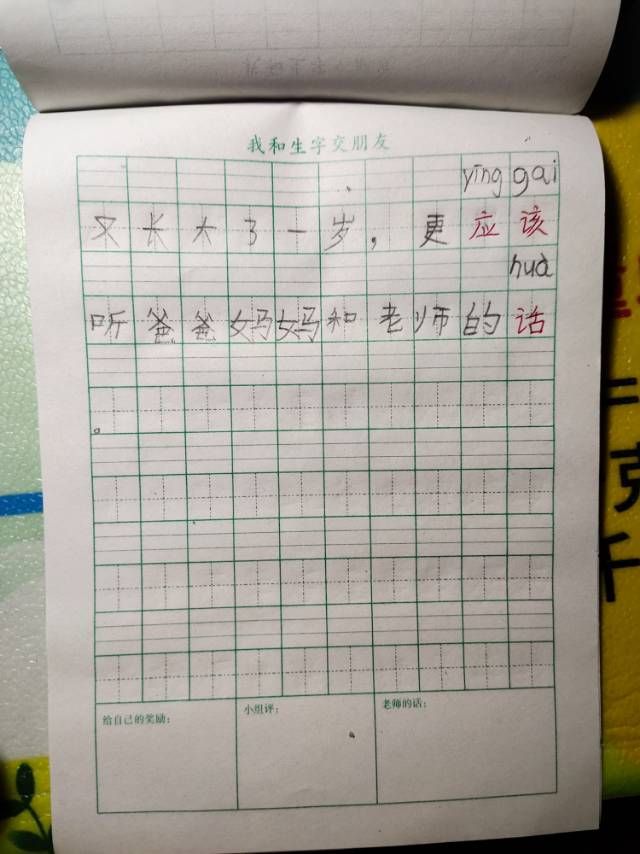 我和生字交朋友
yīng gai
又长大了一岁，更应该
huà
听爸爸妈妈和老师的话
。
给自己的奖励：
小组评：
老师的话：
二
克
千